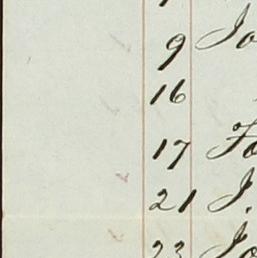 9 Jo
16
17 Fo
21 J.
23 Jo